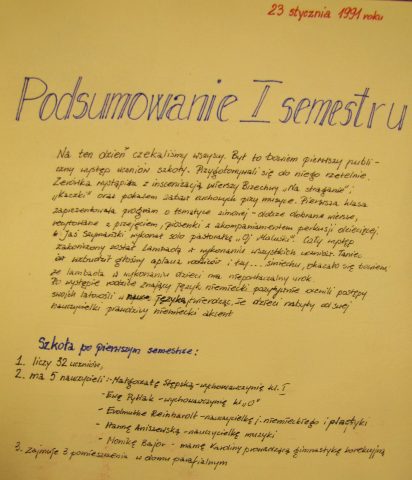 23 stycznia 1991 roku
Podsumowanie I semestru
Na ten dzień czekaliśmy wszyscy. Był to bowiem pierwszy publi-
czny występ uczniów szkoły. Przygotowywali się do niego rzetelnie.
Zerówka wystąpiła z inscenizacją wierszy Brzechwy „Na straganie" i
„Kaczki" oraz pokazem zabaw ruchowych przy muzyce. Pierwsza klasa
zaprezentowała program o tematyce zimowej - dobrze dobrane wiersze,
recytowane z przejęciem, piosenki z akompaniamentem perkusji dziecięcej.
Jaś Szymański wykonał solo pastorałkę „Oj Maluśki". Cały występ
zakończony został Lambadą w wykonaniu wszystkich uczniów. Taniec
ten wzbudził głośny aplauz rodziców i łzy... śmiechu, okazało się bowiem,
że lambada w wykonaniu dzieci ma niepowtarzalny urok.
Po występie rodzice znający język niemiecki pozytywnie ocenili postępy
swoich latorośli w nauce języka, twierdząc, że dzieci nabyły od swej
nauczycielki prawdziwy niemiecki akcent
Szkoła po pierwszym semestrze:
1. liczy 32 uczniów,
2. ma 5 nauczycieli: - Małgorzatę Stępską - wychowawczynię kl. I
- Ewę Rybak - wychowawczynię kl. „0"
- Evelmuthe Reinhardt - nauczycielkę j. niemieckiego i plastyki
- Hannę Aniszewską - nauczycielkę muzyki
- Monikę Bajor - mamę Karoliny prowadzącą gimnastykę korekcyjną
3. zajmuje 3 pomieszczenia w domu parafialnym